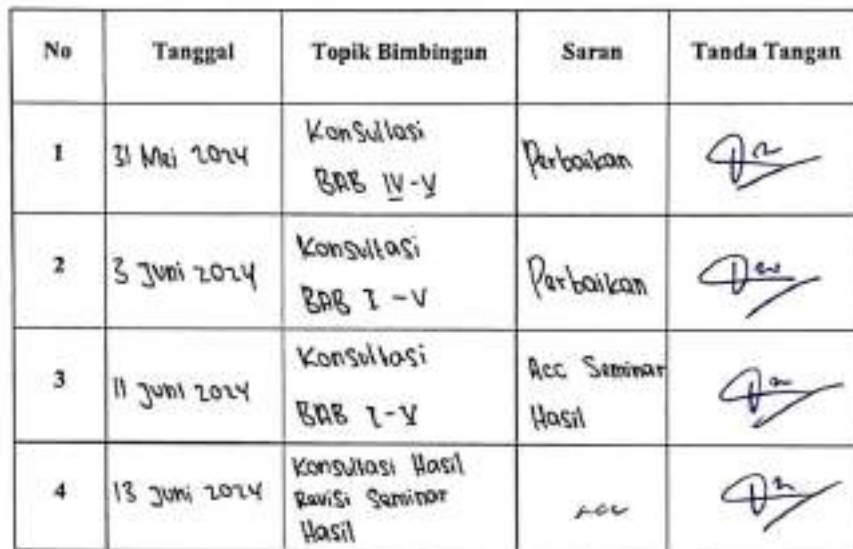 No Tanggal Topik Bimbingan Saran Tanda Tangan
1 31 Mei 2024 Konsultasi BAB IV-V Perbaikan
2 3 Juni 2024 Konsultasi BAB I - V Perbaikan
3 11 Juni 2024 Konsultasi BAB I-V Acc Seminar Hasil
4 13 Juni 2024 Konsultasi Hasil Revisi Seminar Hasil acc